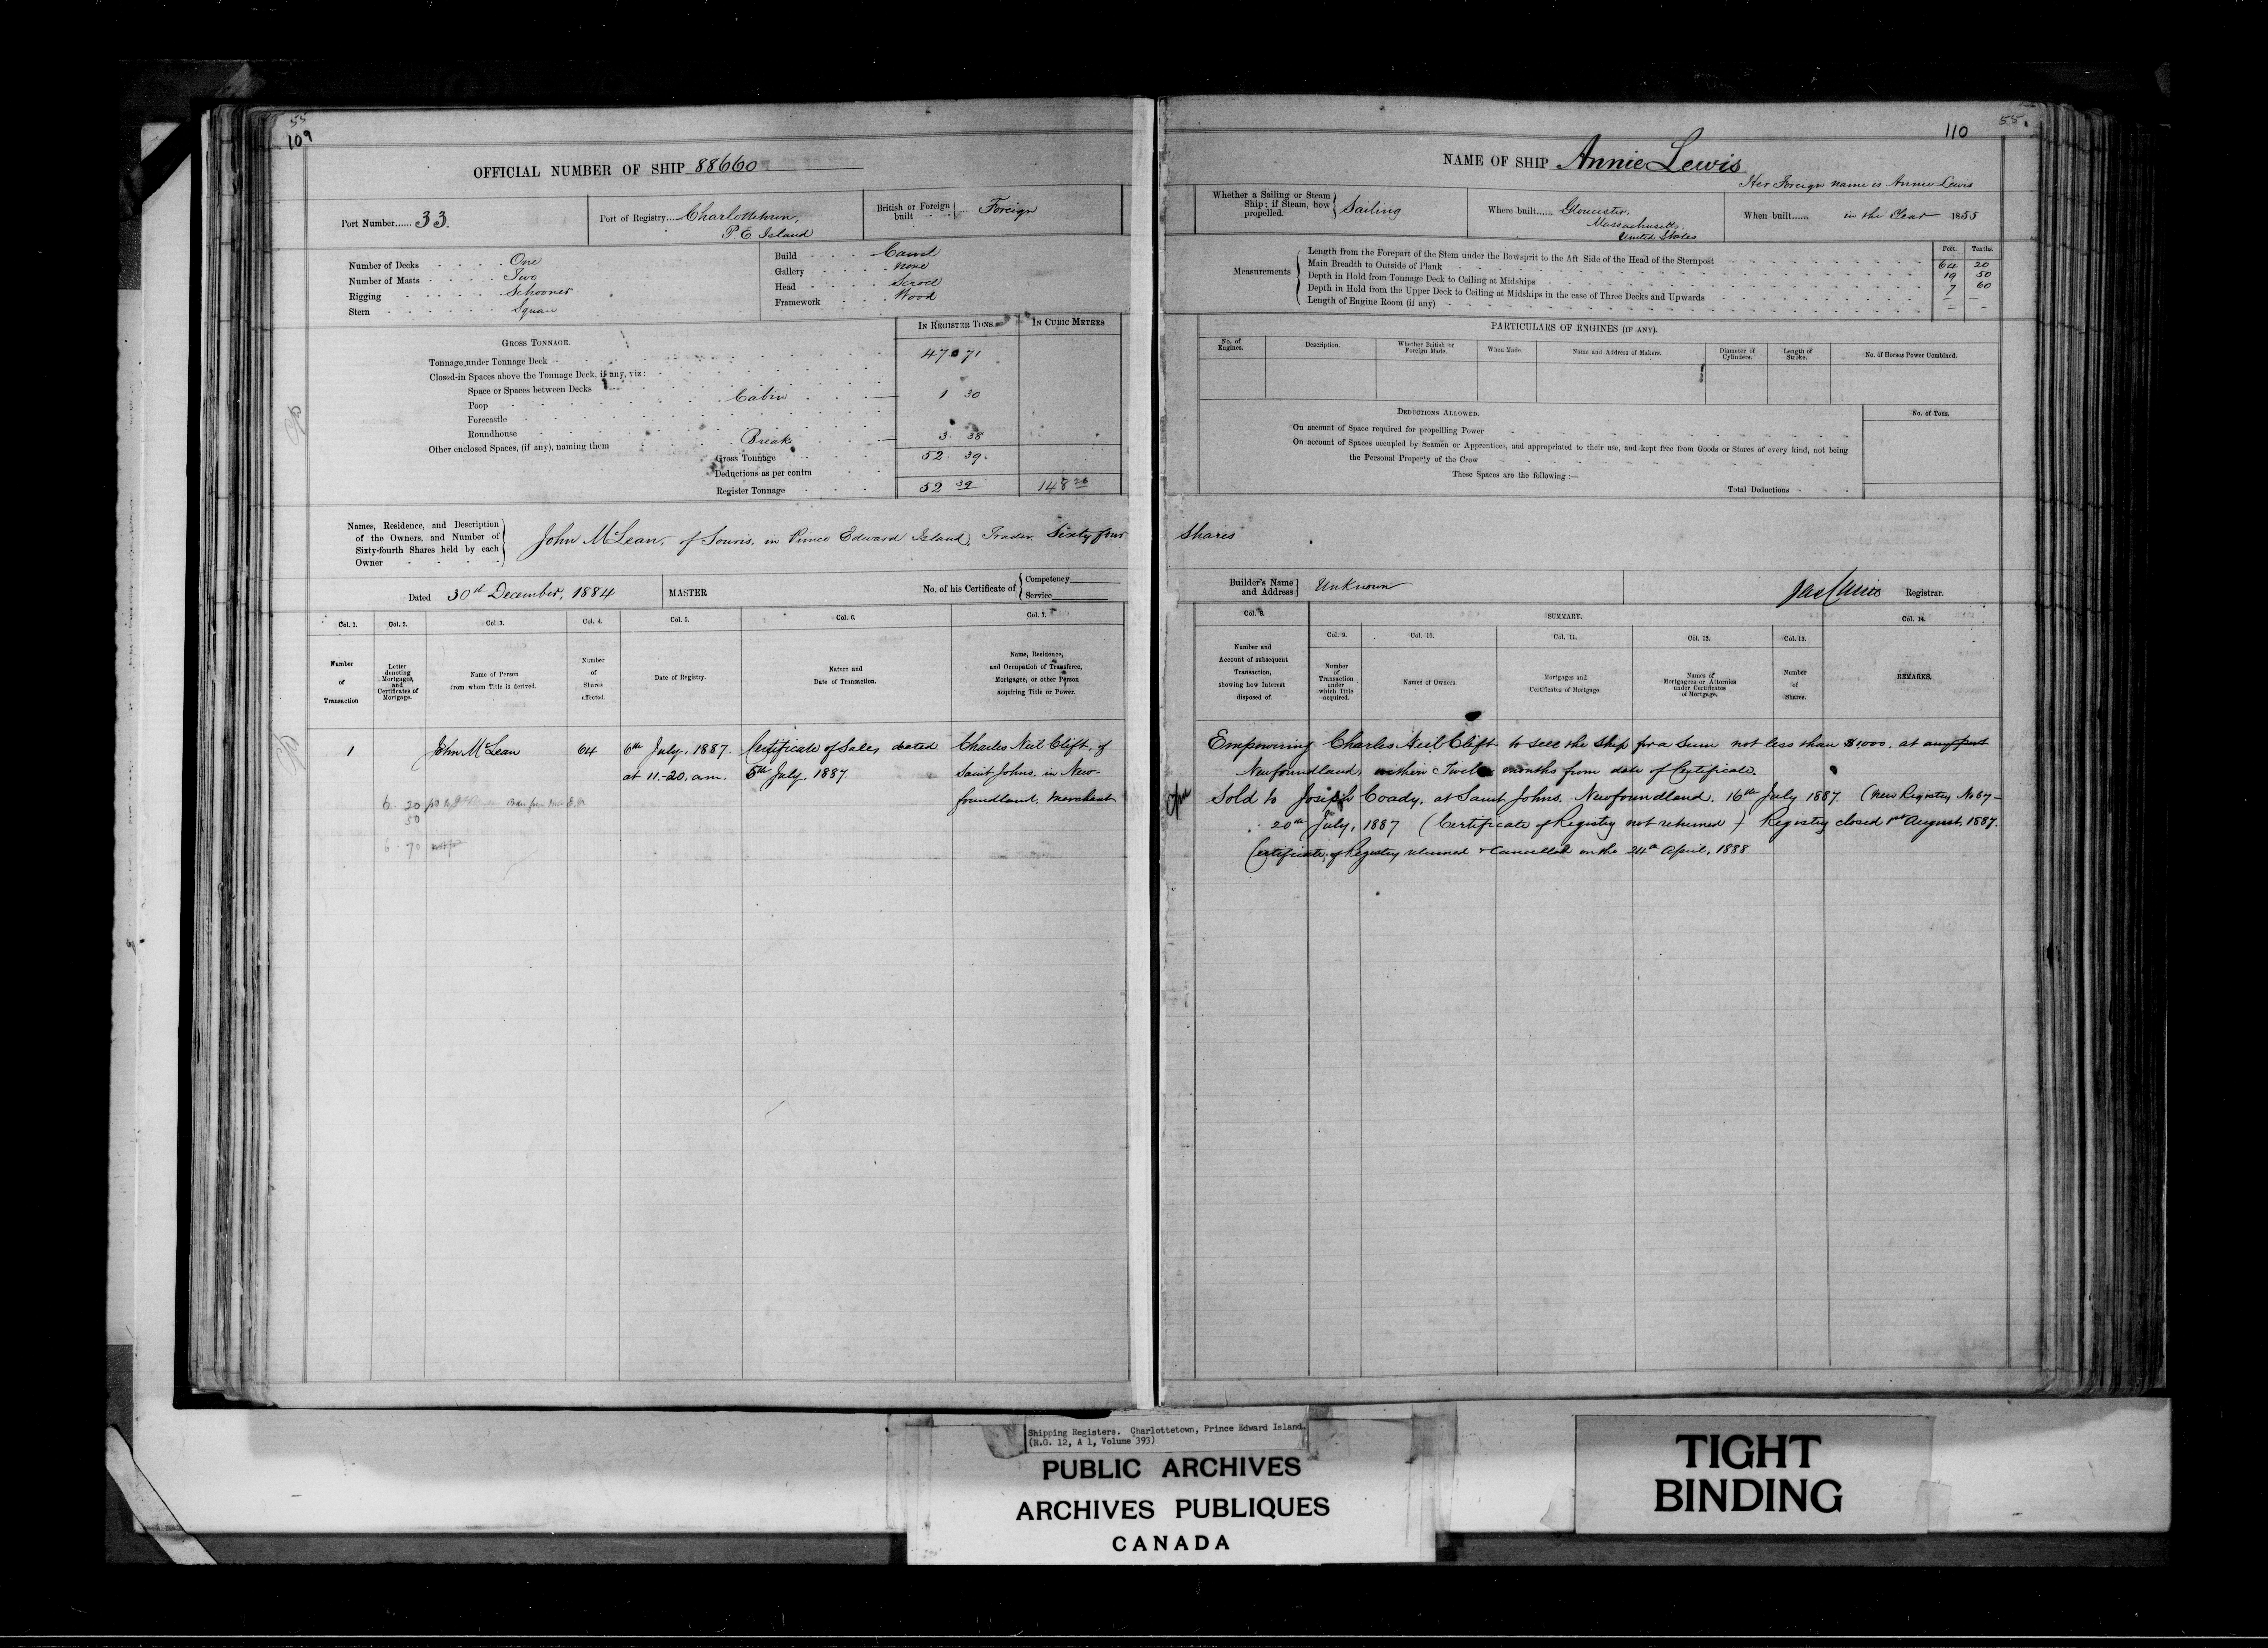 55
109
OFFICIAL NUMBER OF SHIP 88660
Port Number...... 33.
Port of Registry.... Charlottetown,
P.E Island
British or Foreign built Foreign
Number of Decks One
Number of Masts Two
Rigging Schooner
Stern Square
Build Carvel
Gallery None
Head Scroll
Framework Wood
GROSS TONNAGE.
IN REGISTER TONS.
IN CUBIC METRES
Tonnage under Tonnage Deck 47 71
Closed-in Spaces above the Tonnage Deck, if any, viz:
Space or Spaces between Decks
Poop Cabin 1 30
Forecastle
Roundhouse
Other enclosed Spaces, (if any), naming them Break 3. 38
Gross Tonnage 52. 39.
Deductions as per contra
Register Tonnage 52 39 148
Names, Residence, and Description
of the Owners, and Number of
Sixty-fourth Shares held by each
Owner
John McLean, of Souris, in Prince Edward Island, Trader, Sixty four
Dated 30th December, 1884
MASTER
No. of his Certificate of { Competency
Service
Col. 1.
Col. 2.
Col. 3.
Col. 4.
Col. 5.
Col. 6.
Col. 7.
Number of Transaction
Letter denoting Mortgages, and Certificates of Mortgage.
Name of Person from whom Title is derived.
Number of Shares affected.
Date of Registry.
Nature and Date of Transaction.
Name, Residence, and Occupation of Transferee, Mortgagee, or other Person acquiring Title or Power.
1 John McLean 64 6th July, 1887. Certificate of Sale, dated Charles Neil Clift, of
at 11-20, a.m. 5th July, 1887. Saint Johns, in New-
foundland, Merchant
6. 20
50
6. 70
110
55.
NAME OF SHIP Annie Lewis
Her Foreign name is Annie Lewis
Whether a Sailing or Steam Ship; if Steam, how propelled. Sailing
Where built...... Gloucester,
Massachusetts,
United States
When built...... in the Year 1855
Feet. Tenths.
Measurements
Length from the Forepart of the Stem under the Bowsprit to the Aft Side of the Head of the Sternpost 64 20
Main Breadth to Outside of Plank 19 50
Depth in Hold from Tonnage Deck to Ceiling at Midships 7 60
Depth in Hold from the Upper Deck to Ceiling at Midships in the case of Three Decks and Upwards – –
Length of Engine Room (if any) – –
PARTICULARS OF ENGINES (IF ANY).
No. of Engines.
Description.
Whether British or Foreign Made.
When Made.
Name and Address of Makers.
Diameter of Cylinders.
Length of Stroke.
No. of Horses Power Combined.
DEDUCTIONS ALLOWED.
No. of Tons.
On account of Space required for propelling Power
On account of Spaces occupied by Seamen or Apprentices, and appropriated to their use, and kept free from Goods or Stores of every kind, not being
the Personal Property of the Crew
These Spaces are the following:—
Total Deductions
Shares
Builder's Name and Address } Unknown
Registrar.
Col. 8.
SUMMARY.
Col. 14.
Col. 9.
Col. 10.
Col. 11.
Col. 12.
Col. 13.
Number and Account of subsequent Transaction, showing how Interest disposed of.
Number of Transaction under which Title acquired.
Names of Owners.
Mortgages and Certificates of Mortgage.
Names of Mortgagees or Attornies under Certificates of Mortgage.
Number of Shares.
REMARKS.
Empowering Charles Neil Clift to sell the ship for a sum not less than $1000, at any port
Newfoundland, within Twelve months from date of Certificate.
Sold to Joseph Coady, at Saint Johns, Newfoundland, 16th July 1887. (New Registry No 67-
20th July, 1887 (Certificate of Registry not returned) Registry closed 1st August, 1887.
Certificate of Registry returned & Cancelled on the 24th April, 1888
Shipping Registers. Charlottetown, Prince Edward Island.
(R.G. 12, A 1, Volume 393)
PUBLIC ARCHIVES
ARCHIVES PUBLIQUES
CANADA
TIGHT
BINDING